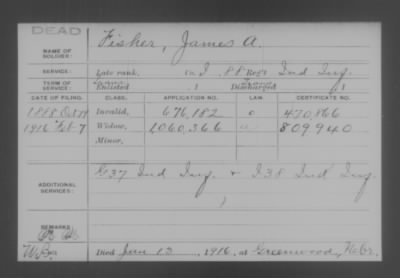 DEAD
NAME OF SOLDIER: Fisher, James A.
SERVICE: Late rank, Co. I, 88 Reg't Ind Inf.
TERM OF SERVICE: Enlisted , 1 Discharged , 1
DATE OF FILING. CLASS. APPLICATION NO. LAW. CERTIFICATE NO.
1888 Oct Invalid, 676,182 c 470,866
1916 Feb 7 Widow, 1,060,366 " 809940
Minor,
ADDITIONAL SERVICES: G 37 Ind Inf. & I 38 Ind Inf.
REMARKS:
Died Jun 13, 1916, at Greenwood, Nebr.